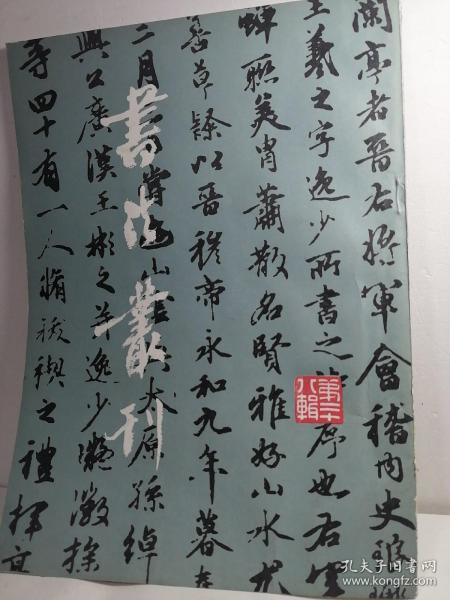 書法叢刊
蘭亭者晉右將軍會稽內史瑯
王羲之字逸少所書之詩序也右軍
蟬聯美胄蕭散名賢雅好山水尤
善草隸以晉穆帝永和九年暮春
月三日山太原孫綽
興公廣漢王彬之并逸少凝徽操
等四十有一人脩祓禊之禮揮
八輯
孔夫子旧书网